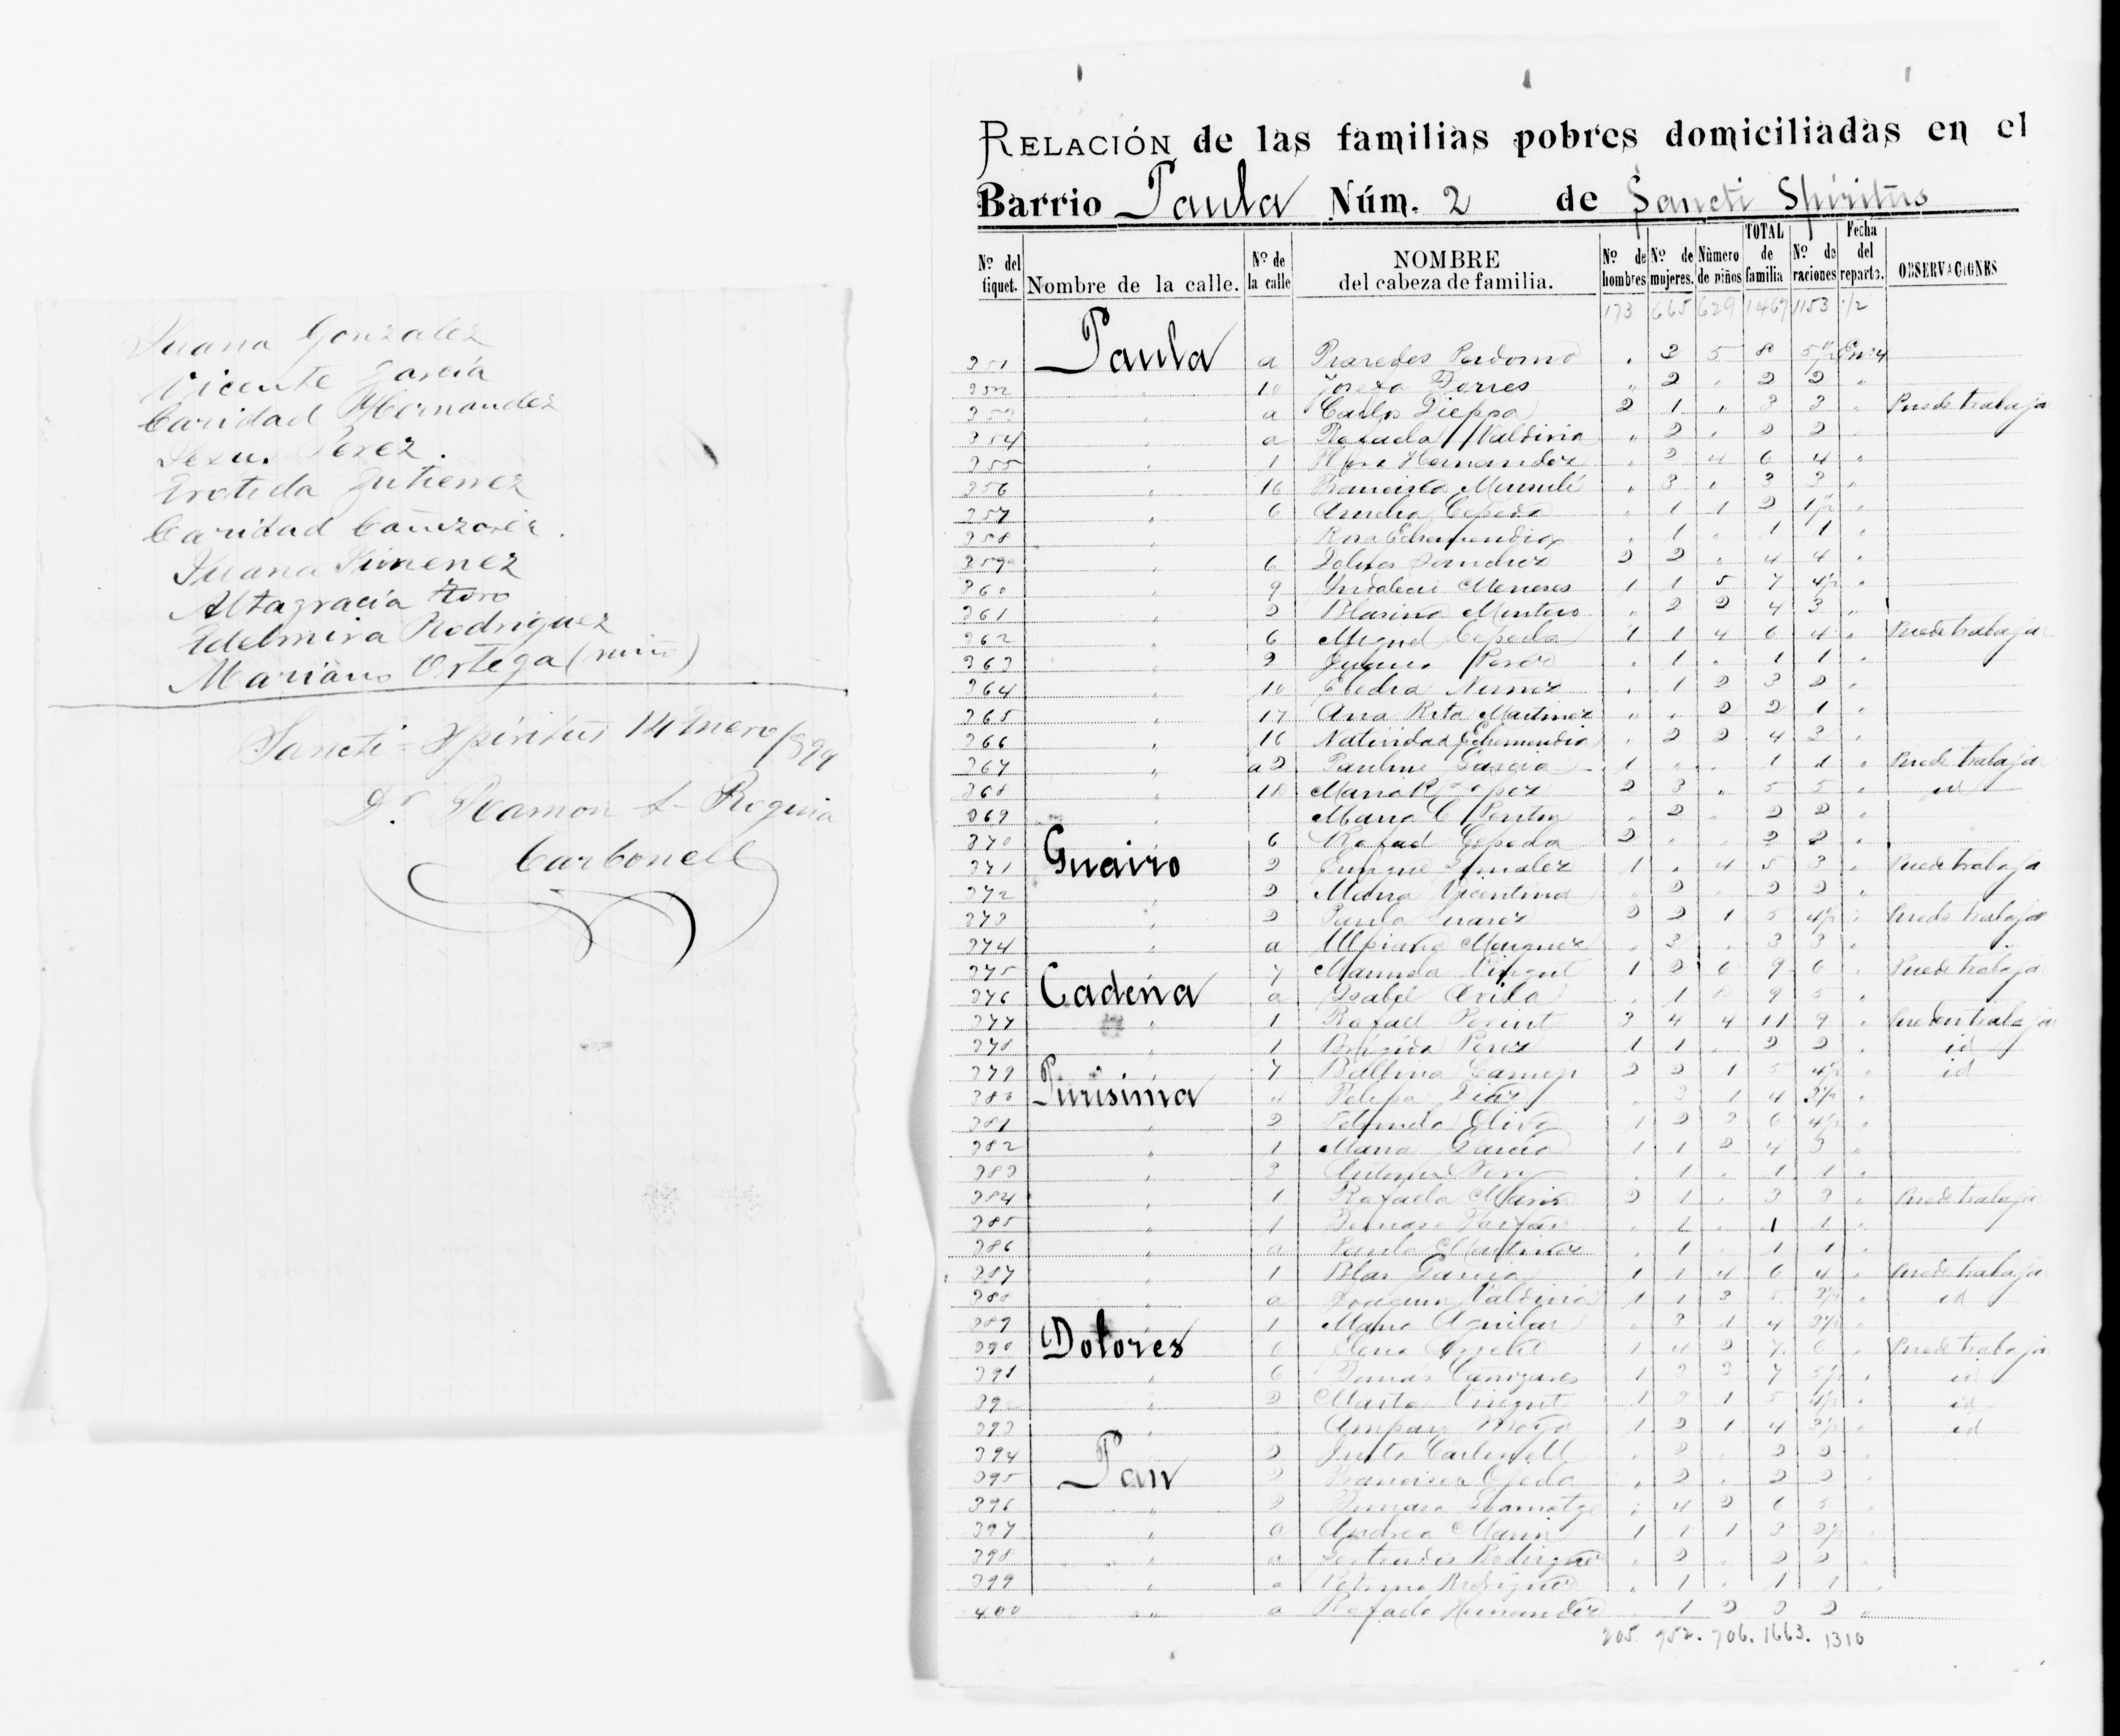 Juana Gonzalez
Vicente Garcia
Caridad Hernandez
Perez.
Erotida Gutierrez
Caridad Cañizares.
Juana Jimenez
Altagracia Toro
Edelmira Rodriguez
Mariano Ortega (niño)
Sancti-Spiritus 14 Enero/899
Dr. Ramon
Carbonell
RELACIÓN de las familias pobres domiciliadas en el
Barrio Paula Núm. 2 de Sancti Spiritus
Nº del tiquet. Nombre de la calle. Nº de la calle NOMBRE del cabeza de familia. Nº de hombres Nº de mujeres. Número de niños TOTAL de familia Nº de raciones Fecha del reparto. OBSERVACIONES
173 665 629 1467 1153 1/2
351 Paula a Praredes Perdomo . 3 5 8
352 " 10 Josefa Torres " 2 . 2 2 "
353 " a Carlos Dieppa 2 1 . 3 3 " Puede trabajar
354 " a Rafaela Valdivia " 2 . 2 2
355 " 1 Hernandez . 2 4 6 4 "
356 " 16 Francisca . 3 . 3 3 "
357 " 6 Amelia Cepeda . 1 1 2 1½ "
358 " Rosa Echemendia . 1 . 1 1 "
359 " 6 Sanchez 2 2 . 4 4 "
360 " 9 Indalecio Meneses 1 1 5 7 4½ "
361 " 2 Montero " 2 2 4 3 "
362 " 6 Miguel Cepeda 1 1 4 6 4 " Puede trabajar
363 " 9 Perez . 1 . 1 1 "
364 " 10 Nuñez . 1 2 3 2 "
365 " 17 Ana Rita Martinez " . 2 2 1 "
366 " 16 Natividad Echemendia . 2 2 4 3 "
367 " a2 Garcia 1 . . 1 1 " Puede trabajar
368 " 18 Maria R. Lopez 2 3 . 5 5 " id
369 " Maria C. . 2 . 2 2 "
370 6 Rafael Cepeda 2 . . 2 2 "
371 Guairo 2 Enrique Gonzalez 1 . 4 5 3 " Puede trabajar
372 " 2 Maria Vicentina " 2 . 2 2 "
373 " 2 Paula Suarez 2 2 1 5 4½ " Puede trabajar
374 " a Ulpiana Marquez . 3 . 3 3 "
375 7 Manuela Vingut 1 2 6 9 6 " Puede trabajar
376 Cadena a Isabel Avila . 1 8 9 5 "
377 " 1 Rafael 3 4 4 11 9 " Pueden trabajar
378 " 1 Brigida Perez 1 1 . 2 2 " id
379 " 7 Balbina 2 2 1 5 4½ " id
380 Purisima " Felipa Diaz " 3 1 4 3½ "
381 " 2 1 2 3 6 4½ "
382 " 1 Maria Garcia 1 1 2 4 3 "
383 " 3 . 1 . 1 1 "
384 " 1 Rafaela Marin 2 1 . 3 3 " Puede trabajar
385 " 1 . 1 . 1 1 "
386 " a Paula Martinez . 1 . 1 1 "
387 " 1 Blas Garcia 1 1 4 6 4 " Puede trabajar
388 " a Joaquin Valdivia 1 1 3 5 3½ " id
389 " 1 Maria Aguilar . 3 1 4 3½ "
390 Dolores 6 1 4 2 7 6 " Puede trabajar
391 " 6 Tomás Cañizares 1 3 3 7 5½ " id
392 " 2 Marta Vingut 1 3 1 5 4½ " id
393 " . Amparo Moya 1 2 1 4 3½ " id
394 2 Justa Carbonell . 2 . 2 2
395 Pan 2 Francisca Ojeda . 2 . 2 2
396 " 2 " 4 2 6 5 "
397 " a Andrea Marin 1 1 1 3 2½
398 " a Gertrudis Rodriguez . 2 . 2 2
399 " a Rodriguez . 1 . 1 1 "
400 " a Rafaela Hernandez . 1 2 3 2 "
205. 752. 706. 1663. 1310